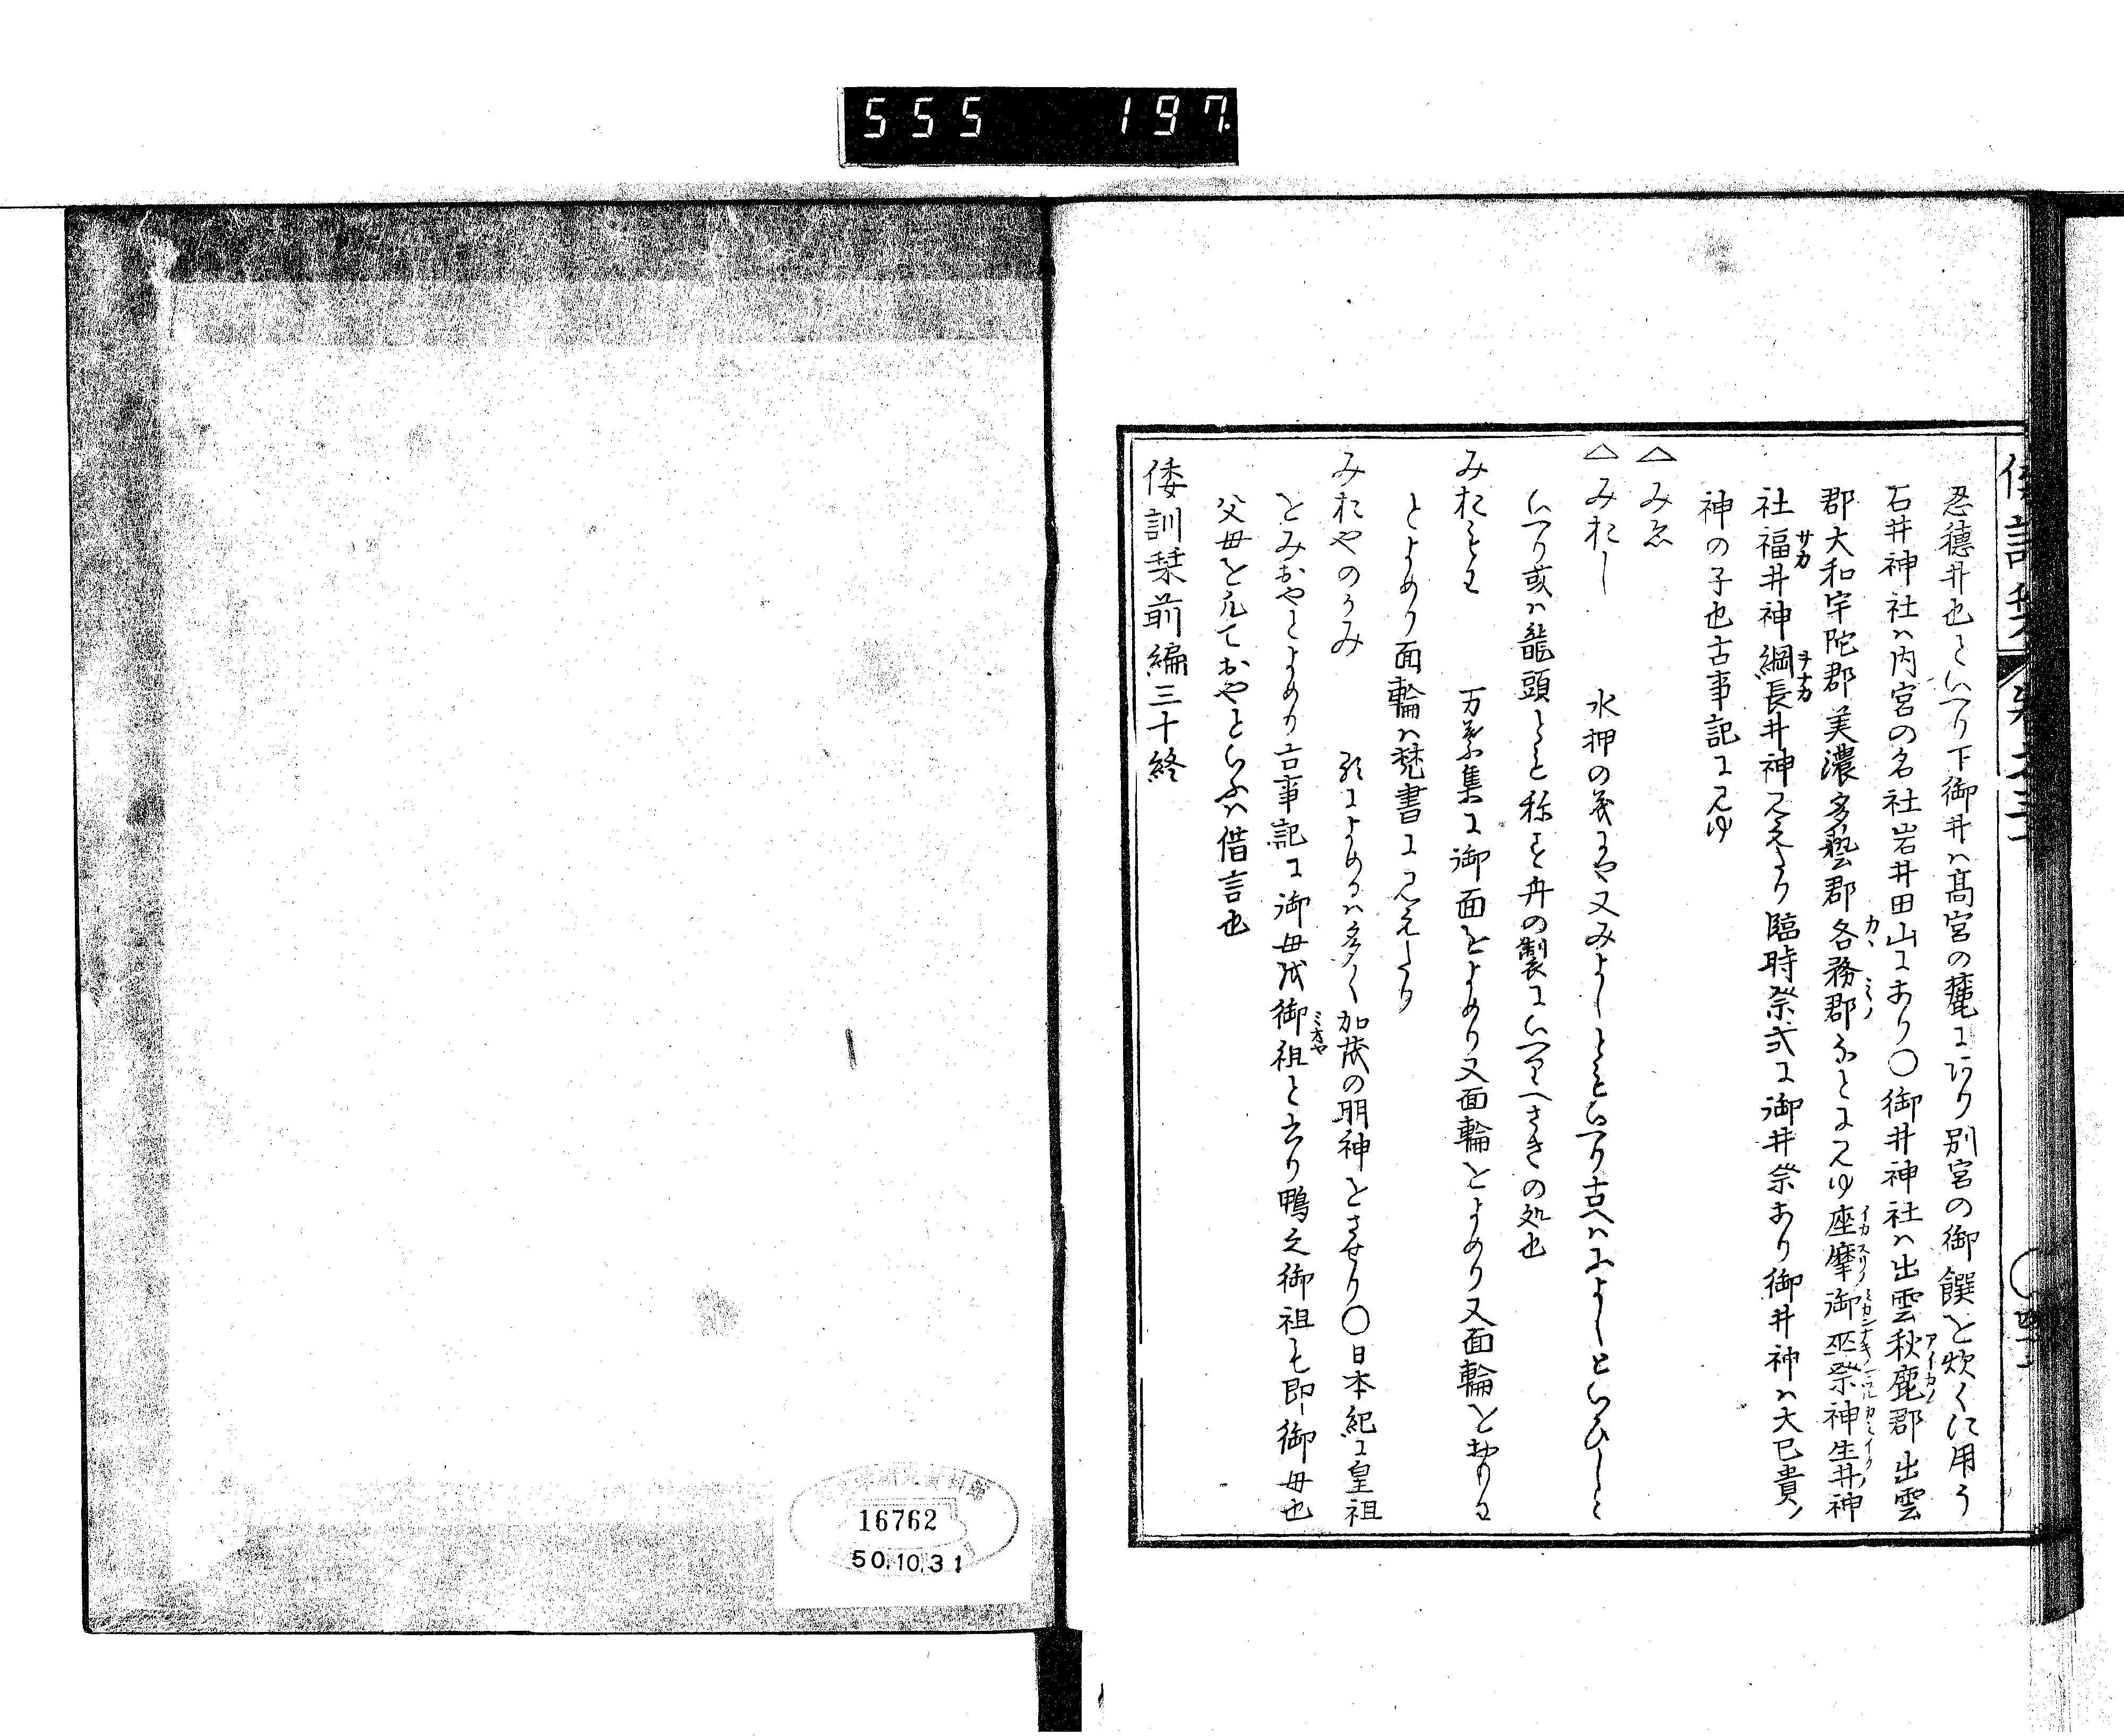 555 197
忍穗井也といへり下御井ハ高宮の麓にあり別宮の御饌を炊くに用う
石井神社ハ内宮の名社岩井田山にあり〇御井神社ハ出雲秋鹿郡出雲
郡大和宇陀郡美濃多藝郡各務郡なとに見ゆ座摩御巫祭神生井神
社福井神綱長井神見えたり臨時祭式に御井祭あり御井神ハ大已貴ノ
神の子也古事記に見ゆ
△みゑ
△みおし 水押の義にや又みよしともいへり古へハみよしといひしと
いへり或ハ龍頭とも称す舟の製にいへりへさきの処也
みおもわ 万葉集に御面をよめり又面輪とよめり又面輪とありわ
とよめり面輪ハ梵書に見えたり
みおやのかみ 歌によめるハ多く加茂の明神をさせり〇日本紀に皇祖
をみおやとよめり古事記に御母或御祖と書り鴨之御祖も即御母也
父母を凡ておやといふハ借言也
倭訓栞前編三十終
16762
50.10.31